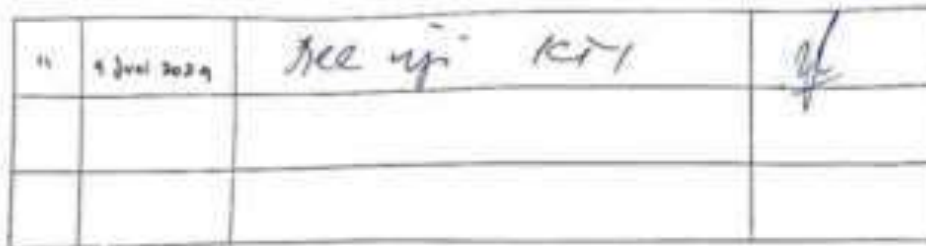 11 9 Juni 2024 Acc uji KTI